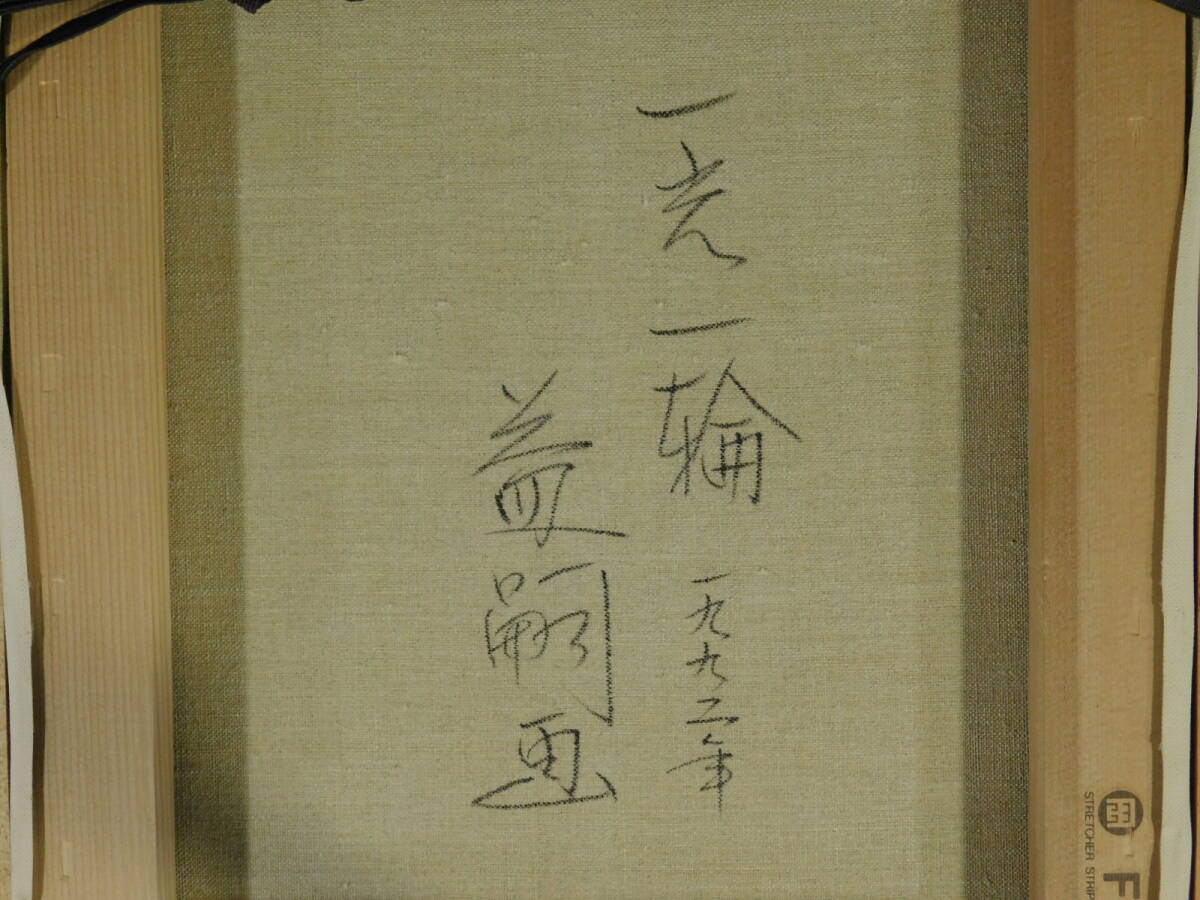 一光一輪 一九九二年
益嗣画
STRETCHER STRIP
F